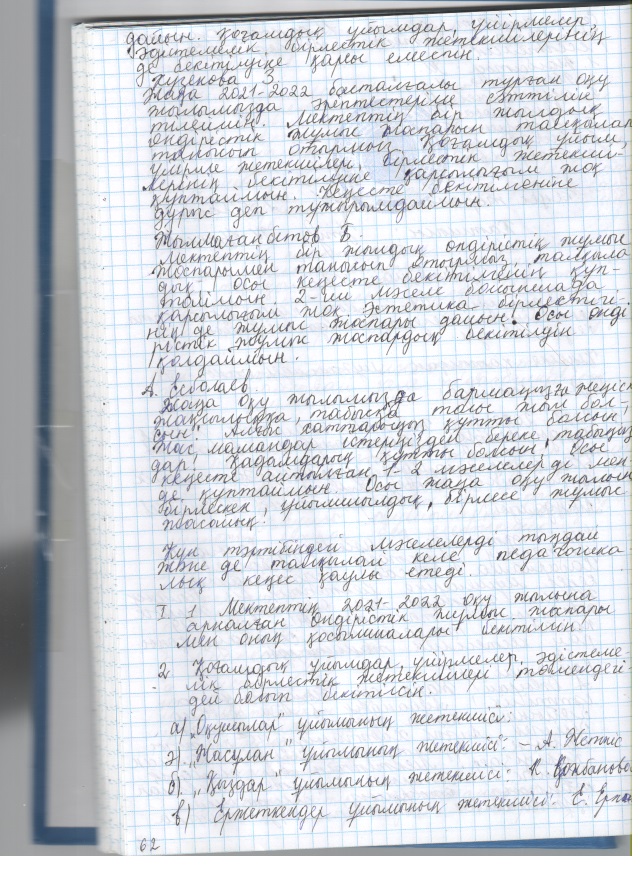 дайын. Қоғамдық ұйымдар, үйірмелер,
әдістемелік бірлестік жетекшілерінің
де бекітілуіне қарсы емеспін.
З.
Жаңа 2021-2022 басталғалы тұрған оқу
жылымызда әріптестеріме сәттілік
тілеймін. Мектептің бір жылдық
өндірістік жұмыс жоспарын талқылап
танысып отырмыз. Қоғамдық ұйым,
үйірме жетекшілері, бірлестік жетекші-
лерінің бекітілуіне қарсылығым жоқ
құптаймын. Кеңесте бекітілгеніне
дұрыс деп тұжырымдаймын.
Жылмағанбетов Б.
Мектептің бір жылдық өндірістік жұмыс
жоспарымен танысып отырмыз, талқыла
дық. Осы кеңесте бекітілуін құп-
таймын. 2-ші мәселе бойынша да
қарсылығым жоқ. Эстетика бірлестігі-
нің де жұмыс жоспары дайын. Осы өнді
рістік жұмыс жоспардың бекітілуін
қолдаймын.
А.
Жаңа оқу жылымызда бәрмаңызға жеңіск
жақсылыққа, табысқа толы жыл бол-
сын! Алғыс хаттарыңыз құтты болсын,
Жас мамандар істеріңізден береке табыңыз
дар! Қадамдарың құтты болсын. Осы
кеңесте айтылған 1-2 мәселелерді мен
де құптаймын. Осы жаңа оқу жылын
бірлескен, ұйымшылдық, бірлесе жұмыс
жасалық!
Күн тәртібіндегі мәселелерді тыңдап
және де талқылай келе педагогика
лық кеңес қаулы етеді.
I. 1 Мектептің 2021-2022 оқу жылына
арналған өндірістік жұмыс жоспары
мен оның қосымшалары бекітілсін
2 Қоғамдық ұйымдар, үйірмелер, әдістеме-
лік бірлестік жетекшілері төмендегі-
дей болып бекітілсін.
а) „Оқушылар" ұйымының жетекшісі:
ә) „Жасұлан" ұйымының жетекшісі: – А.
б) „Қыздар" ұйымының жетекшісі: К.
в) Ержеткендер ұйымының жетекшісі: Е.
62